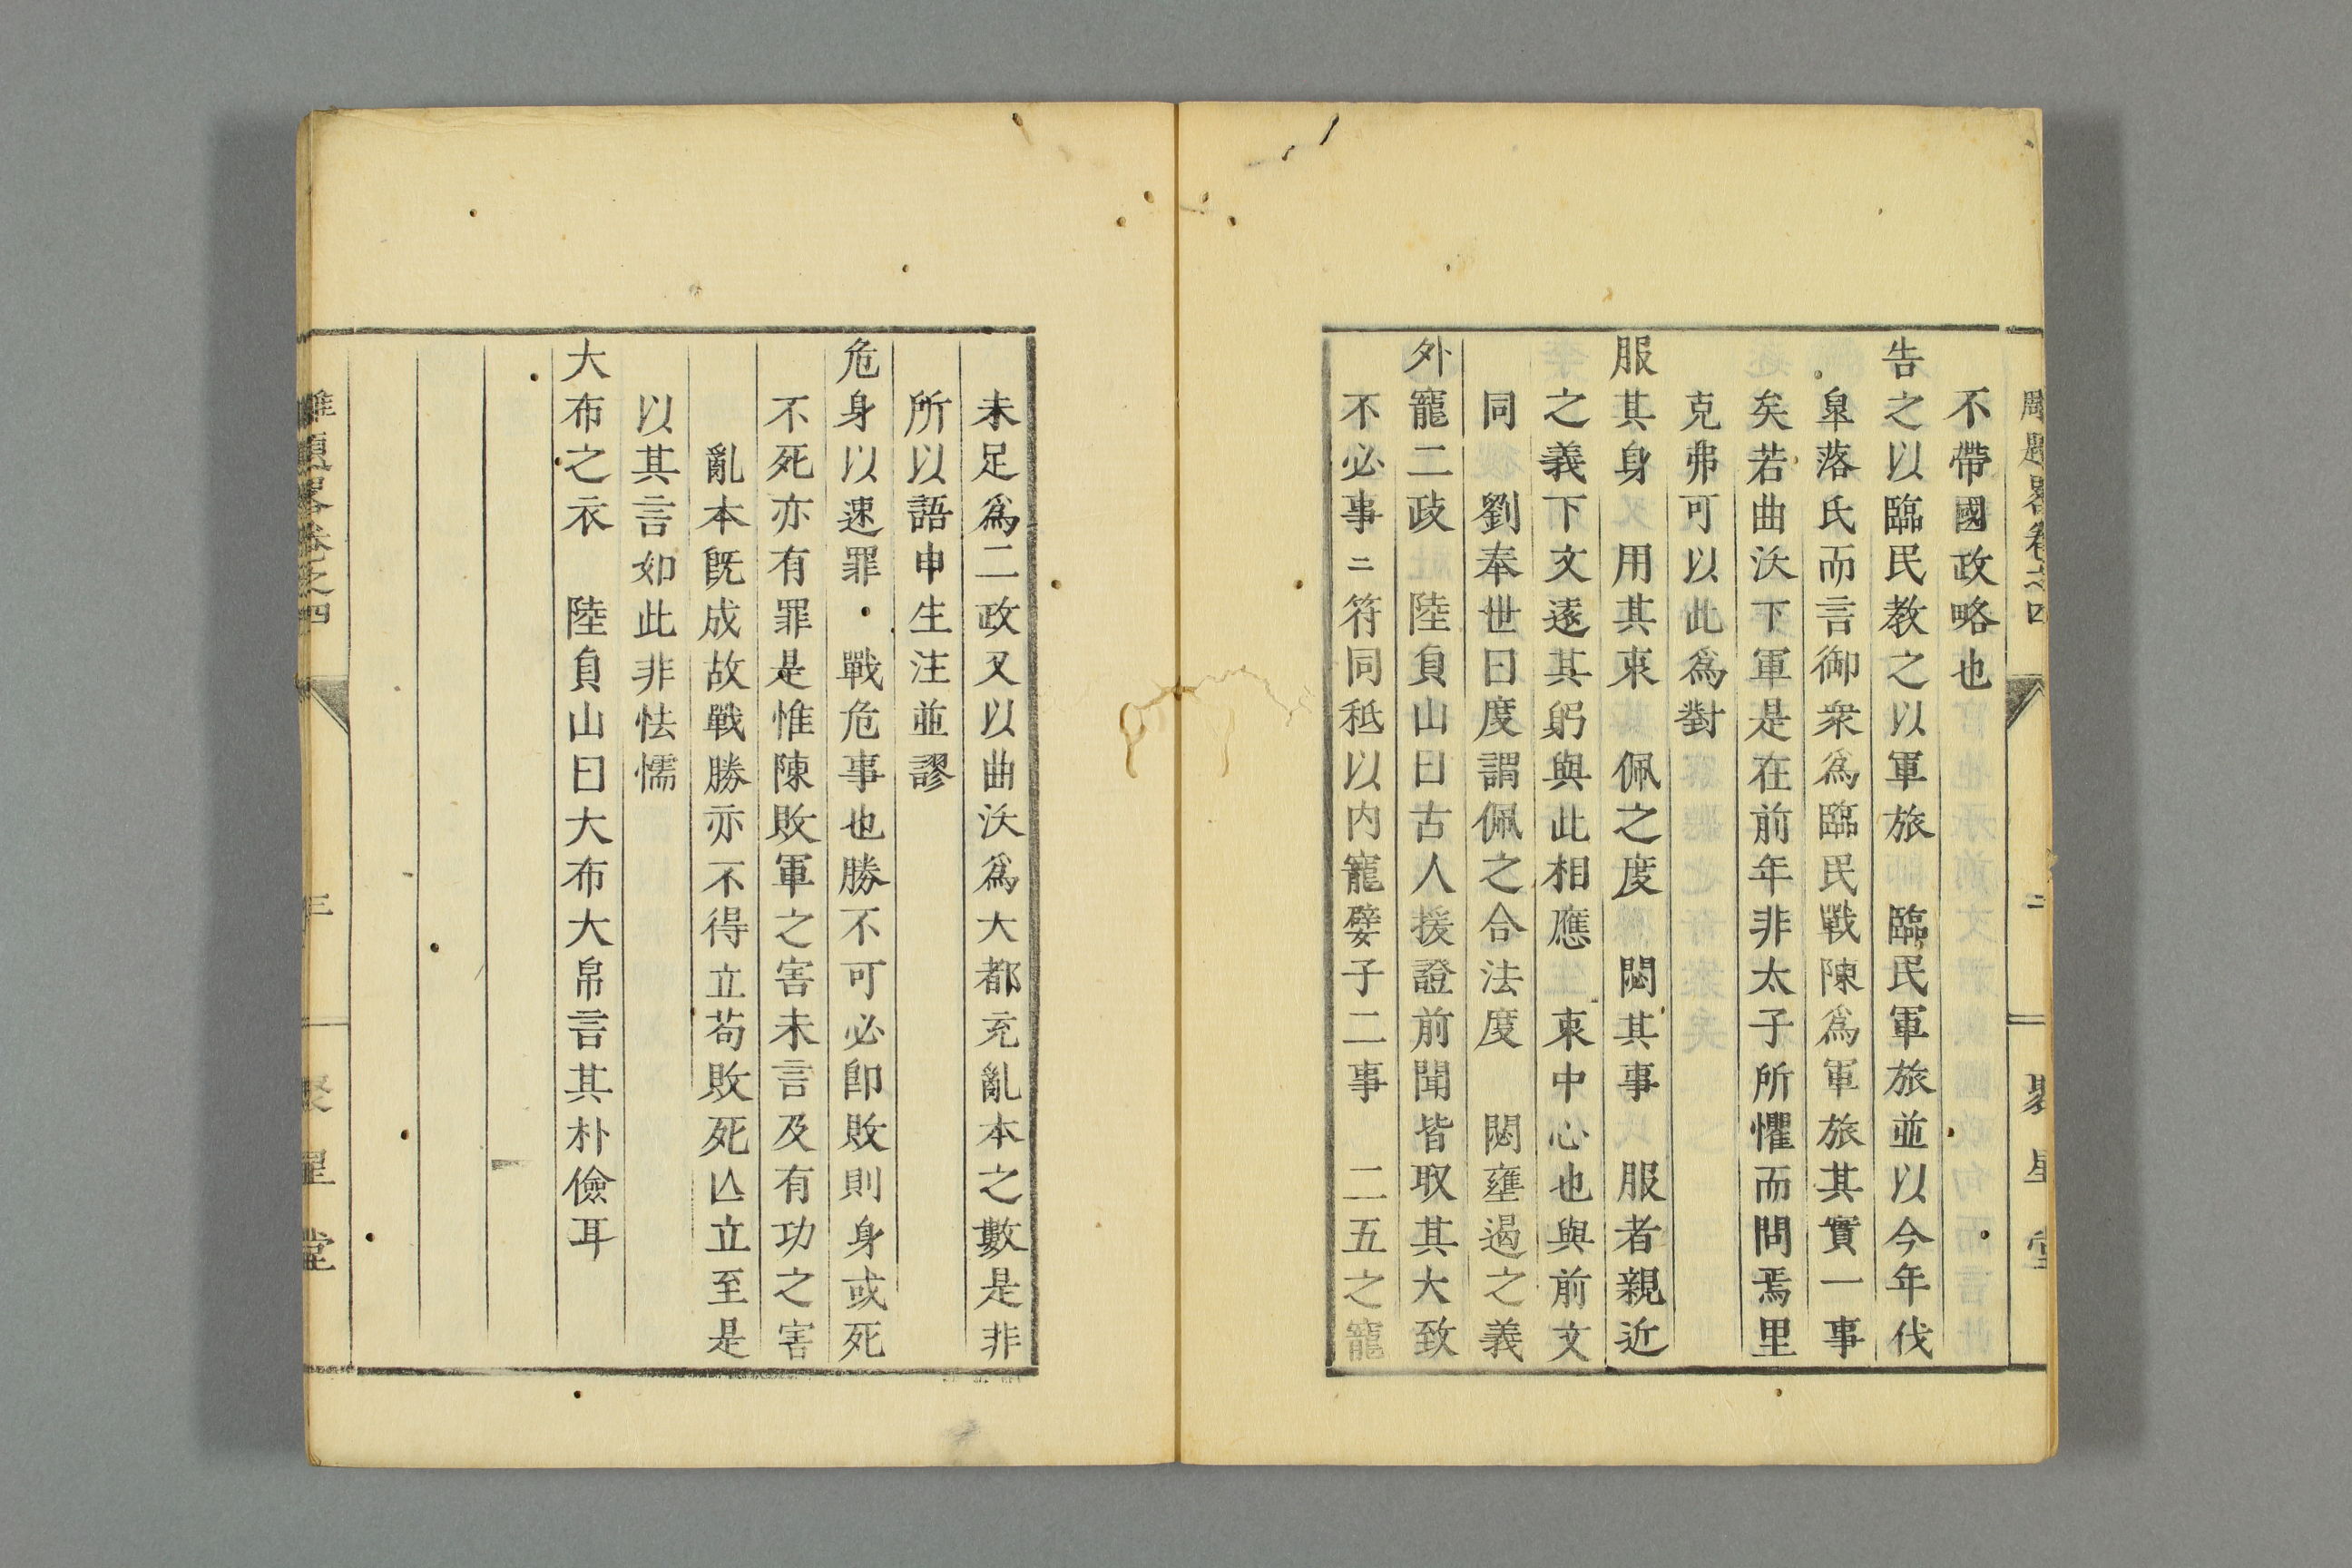 不帶國政略也
告之以臨民教之以軍旅　臨民軍旅並以今年伐
皐落氏而言御衆爲臨民戰陳爲軍旅其實一事
矣若曲沃下軍是在前年非太子所懼而問焉里
克弗可以此爲對
服其身　用其衷　佩之度　閟其事　服者親近
之義下文遠其躬與此相應　衷中心也與前文
同　劉奉世曰度謂佩之合法度　閟壅遏之義
外寵二政　陸貞山曰古人援證前聞皆取其大致
不必事二符同秪以内寵嬖子二事　二五之寵
未足爲二政又以曲沃爲大都充亂本之數是非
所以語申生注並謬
危身以速罪　戰危事也勝不可必卽敗則身或死
不死亦有罪是惟陳敗軍之害未言及有功之害
亂本旣成故戰勝亦不得立苟敗死亾立至是
以其言如此非怯懦
大布之衣　陸貞山曰大布大帛言其朴儉耳
雕題畧卷之四
聚星堂